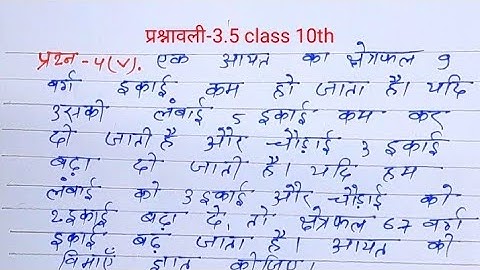 प्रश्नावली-3.5 class 10th
प्रश्न -4(v). एक आयत का क्षेत्रफल 9
वर्ग इकाई कम हो जाता है। यदि
उसकी लंबाई 5 इकाई कम कर
दी जाती है और चौड़ाई 3 इकाई
बढ़ा दी जाती है। यदि हम
लंबाई को 3 इकाई और चौड़ाई को
2 इकाई बढ़ा दे, तो क्षेत्रफल 67 वर्ग
इकाई बढ़ जाता है। आयत की
विमाएँ ज्ञात कीजिए।